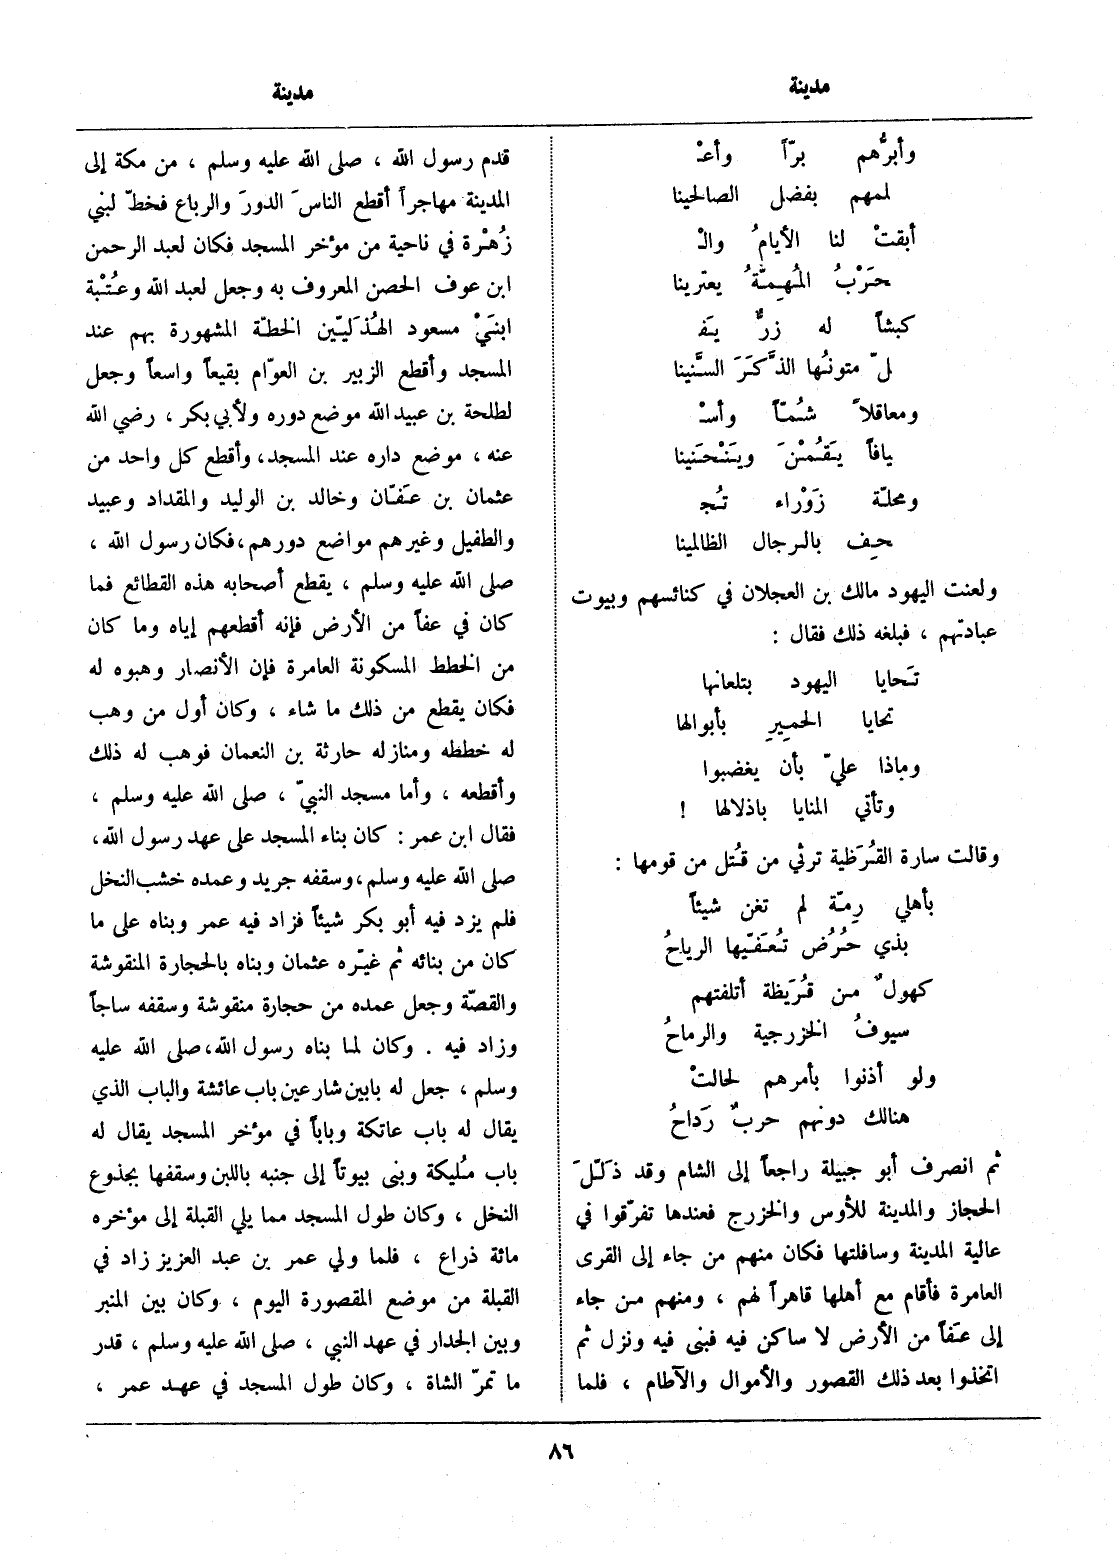 مدينة
مدينة
وأبرُّهم برّاً وأعـْ
لمهم بفضل الصالحينا
أبقتْ لنا الأيامُ والـْ
حَرْبُ المُهِمّةُ يعترينا
كبشاً له زرٌّ يَفـ
لّ متونُها الذَّكَرَ السَّنينا
ومعاقلاً شُمّاً وأسـْ
يافاً يَقُمْنَ ويَنْحَنينا
ومحلّة زَوْراء تُجـ
حِف بالرجال الظالمينا
ولعنت اليهود مالك بن العجلان في كنائسهم وبيوت
عبادتهم ، فبلغه ذلك فقال :
تَحايا اليهود بتلعانها
تحايا الحميرِ بأبوالها
وماذا عليّ بأن يغضبوا
وتأتي المنايا باذلالها !
وقالت سارة القُرَظية ترثي من قُتل من قومها :
بأهلي رِمّة لم تغن شيئاً
بذي حُرُض تُعَفّيها الرياحُ
كهولٌ من قُرَيظة أتلفتهم
سيوفُ الخزرجية والرماحُ
ولو أذنوا بأمرهم لحالتْ
هنالك دونهم حربٌ رَداحُ
ثم انصرف أبو جبيلة راجعاً إلى الشام وقد ذلّلَ
الحجاز والمدينة للأوس والخزرج فعندها تفرّقوا في
عالية المدينة وسافلتها فكان منهم من جاء إلى القرى
العامرة فأقام مع أهلها قاهراً لهم ، ومنهم من جاء
إلى عَفاً من الأرض لا ساكن فيه فبنى فيه ونزل ثم
اتخذوا بعد ذلك القصور والأموال والآطام ، فلما
قدم رسول الله ، صلى الله عليه وسلم ، من مكة إلى
المدينة مهاجراً أقطع الناسَ الدورَ والرباع فخطّ لبني
زُهْرة في ناحية من مؤخر المسجد فكان لعبد الرحمن
ابن عوف الحصن المعروف به وجعل لعبد الله وعُتْبة
ابنَيْ مسعود الهُذَليّين الخطّة المشهورة بهم عند
المسجد وأقطع الزبير بن العوّام بقيعاً واسعاً وجعل
لطلحة بن عبيد الله موضع دوره ولأبي بكر ، رضي الله
عنه ، موضع داره عند المسجد، وأقطع كل واحد من
عثمان بن عَفّان وخالد بن الوليد والمقداد وعبيد
والطفيل وغيرهم مواضع دورهم، فكان رسول الله ،
صلى الله عليه وسلم ، يقطع أصحابه هذه القطائع فما
كان في عفاً من الأرض فإنه أقطعهم إياه وما كان
من الخطط المسكونة العامرة فإن الأنصار وهبوه له
فكان يقطع من ذلك ما شاء ، وكان أول من وهب
له خططه ومنازله حارثة بن النعمان فوهب له ذلك
وأقطعه ، وأما مسجد النبيّ ، صلى الله عليه وسلم ،
فقال ابن عمر : كان بناء المسجد على عهد رسول الله،
صلى الله عليه وسلم، وسقفه جريد وعمده خشب النخل
فلم يزد فيه أبو بكر شيئاً فزاد فيه عمر وبناه على ما
كان من بنائه ثم غيّره عثمان وبناه بالحجارة المنقوشة
والقصّة وجعل عمده من حجارة منقوشة وسقفه ساجاً
وزاد فيه . وكان لما بناه رسول الله، صلى الله عليه
وسلم ، جعل له بابين شارعين باب عائشة والباب الذي
يقال له باب عاتكة وباباً في مؤخر المسجد يقال له
باب مُليكة وبنى بيوتاً إلى جنبه باللبن وسقفها بجذوع
النخل ، وكان طول المسجد مما يلي القبلة إلى مؤخره
مائة ذراع ، فلما ولي عمر بن عبد العزيز زاد في
القبلة من موضع المقصورة اليوم ، وكان بين المنبر
وبين الجدار في عهد النبي ، صلى الله عليه وسلم ، قدر
ما تمرّ الشاة ، وكان طول المسجد في عهد عمر ،
٨٦